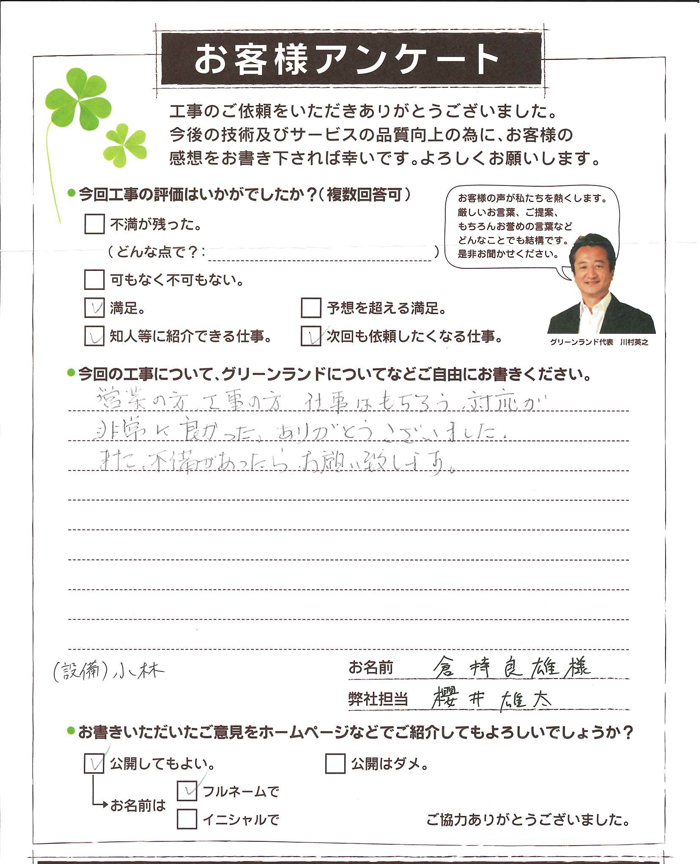 お客様アンケート
工事のご依頼をいただきありがとうございました。
今後の技術及びサービスの品質向上の為に、お客様の
感想をお書き下されば幸いです。よろしくお願いします。
今回工事の評価はいかがでしたか?(複数回答可)
不満が残った。
(どんな点で?: )
可もなく不可もない。
満足。
予想を超える満足。
知人等に紹介できる仕事。
次回も依頼したくなる仕事。
お客様の声が私たちを熱くします。
厳しいお言葉、ご提案、
もちろんお誉めの言葉など
どんなことでも結構です。
是非お聞かせください。
グリーンランド代表 川村英之
今回の工事について、グリーンランドについてなどご自由にお書きください。
営業の方、工事の方、仕事はもちろう、対応が
非常に良かった。ありがとうございました。
また、不備があったら、お願い致します。
(設備)小林
お名前 倉持良雄様
弊社担当 櫻井雄太
お書きいただいたご意見をホームページなどでご紹介してもよろしいでしょうか?
公開してもよい。
公開はダメ。
お名前は
フルネームで
イニシャルで
ご協力ありがとうございました。